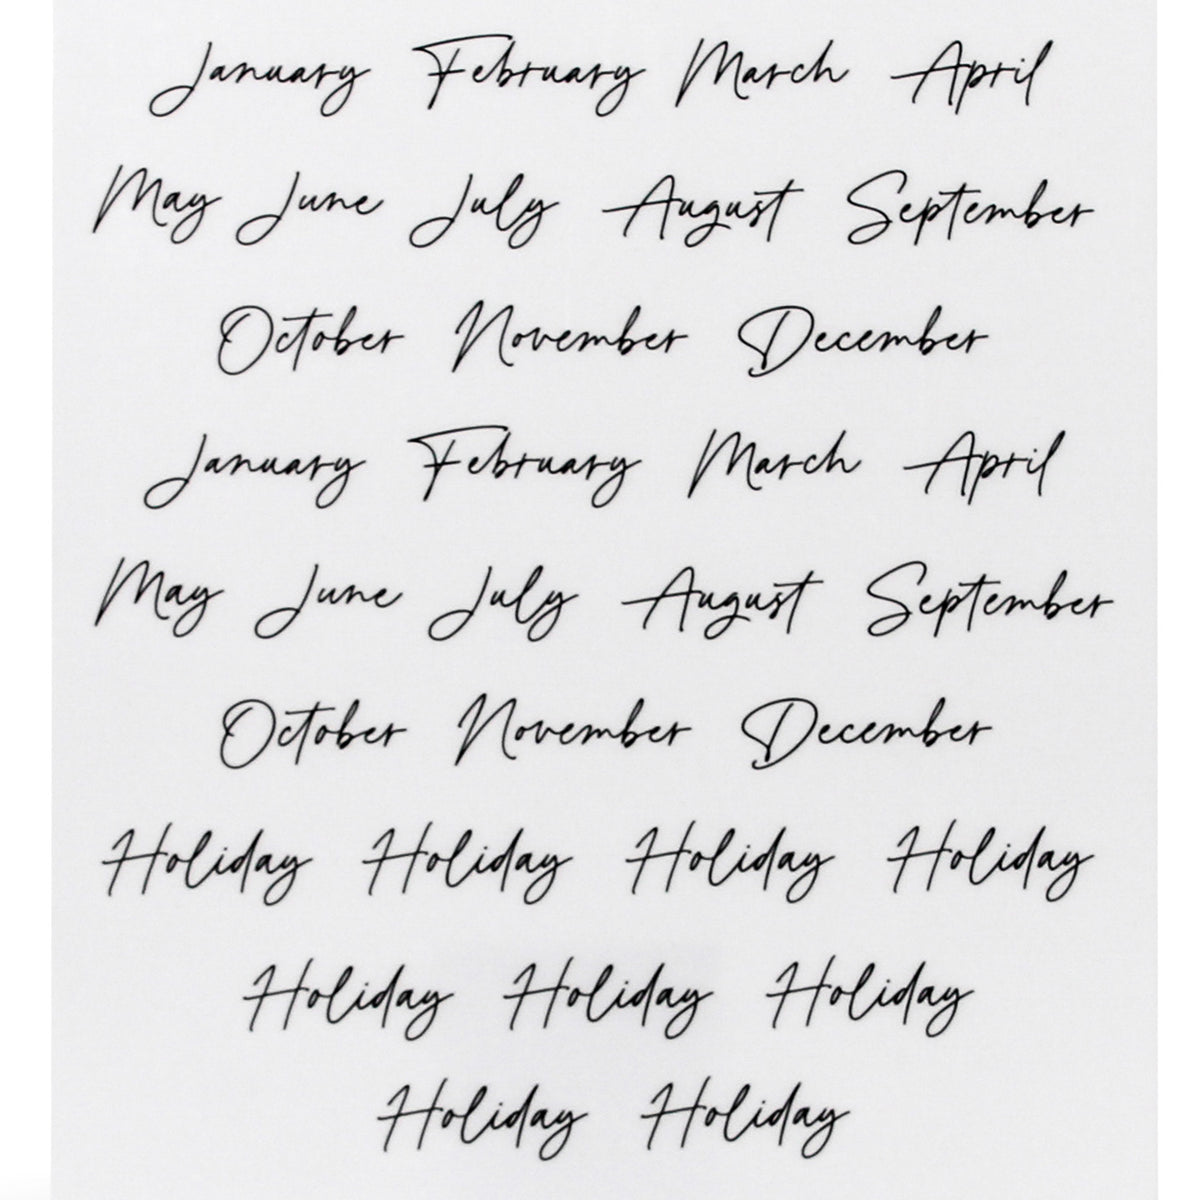 January February March April
May June July August September
October November December
January February March April
May June July August September
October November December
Holiday Holiday Holiday Holiday
Holiday Holiday Holiday
Holiday Holiday